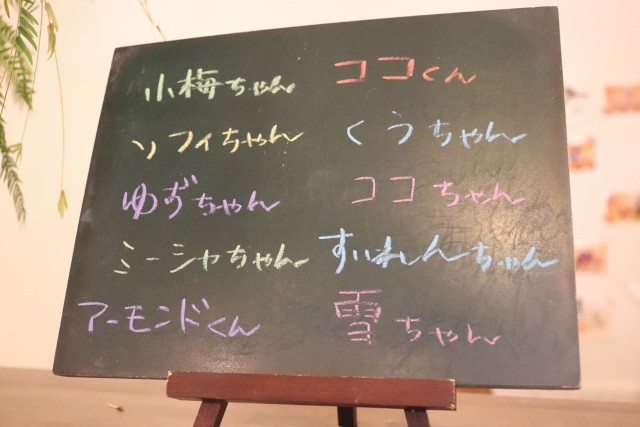 小梅ちゃん
ソフィちゃん
ゆずちゃん
ミーシャちゃん
アーモンドくん
ココくん
くうちゃん
ココちゃん
すいれんちゃん
雪ちゃん